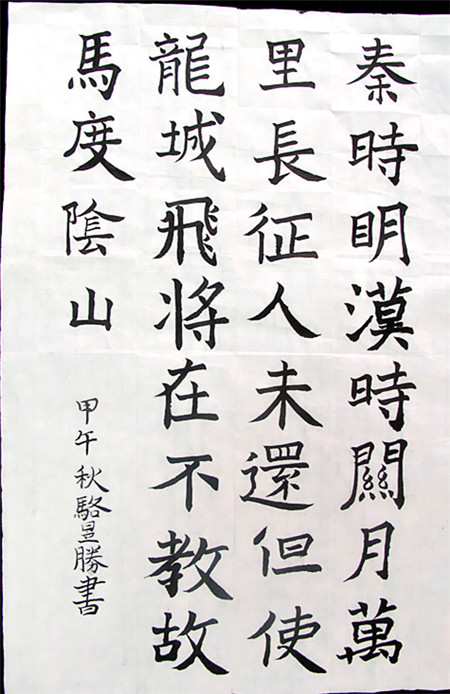 秦時明漠時關月萬
里長征人未還但使
龍城飛将在不教故
馬度陰山
甲午秋駱昱勝書